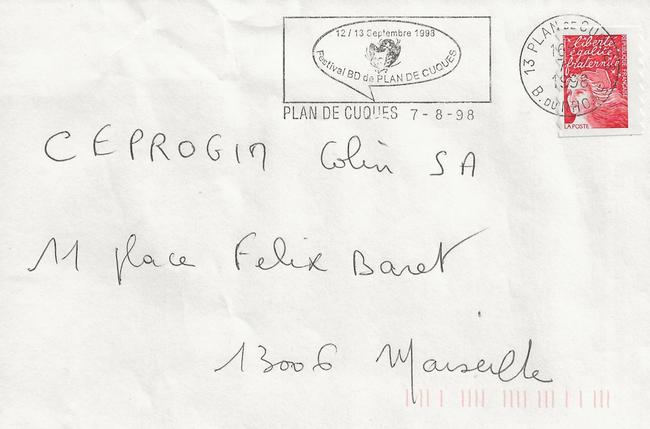 12 / 13 Septembre 1998
Festival BD de PLAN DE CUQUES
PLAN DE CUQUES 7-8-98
13 PLAN DE CU
1998
B. DU RHO
liberté
égalité
fraternité
RÉPUBLIQUE FRANÇAISE
LA POSTE
CEPROGIM Colin SA
11 place Felix Baret
13006 Marseille